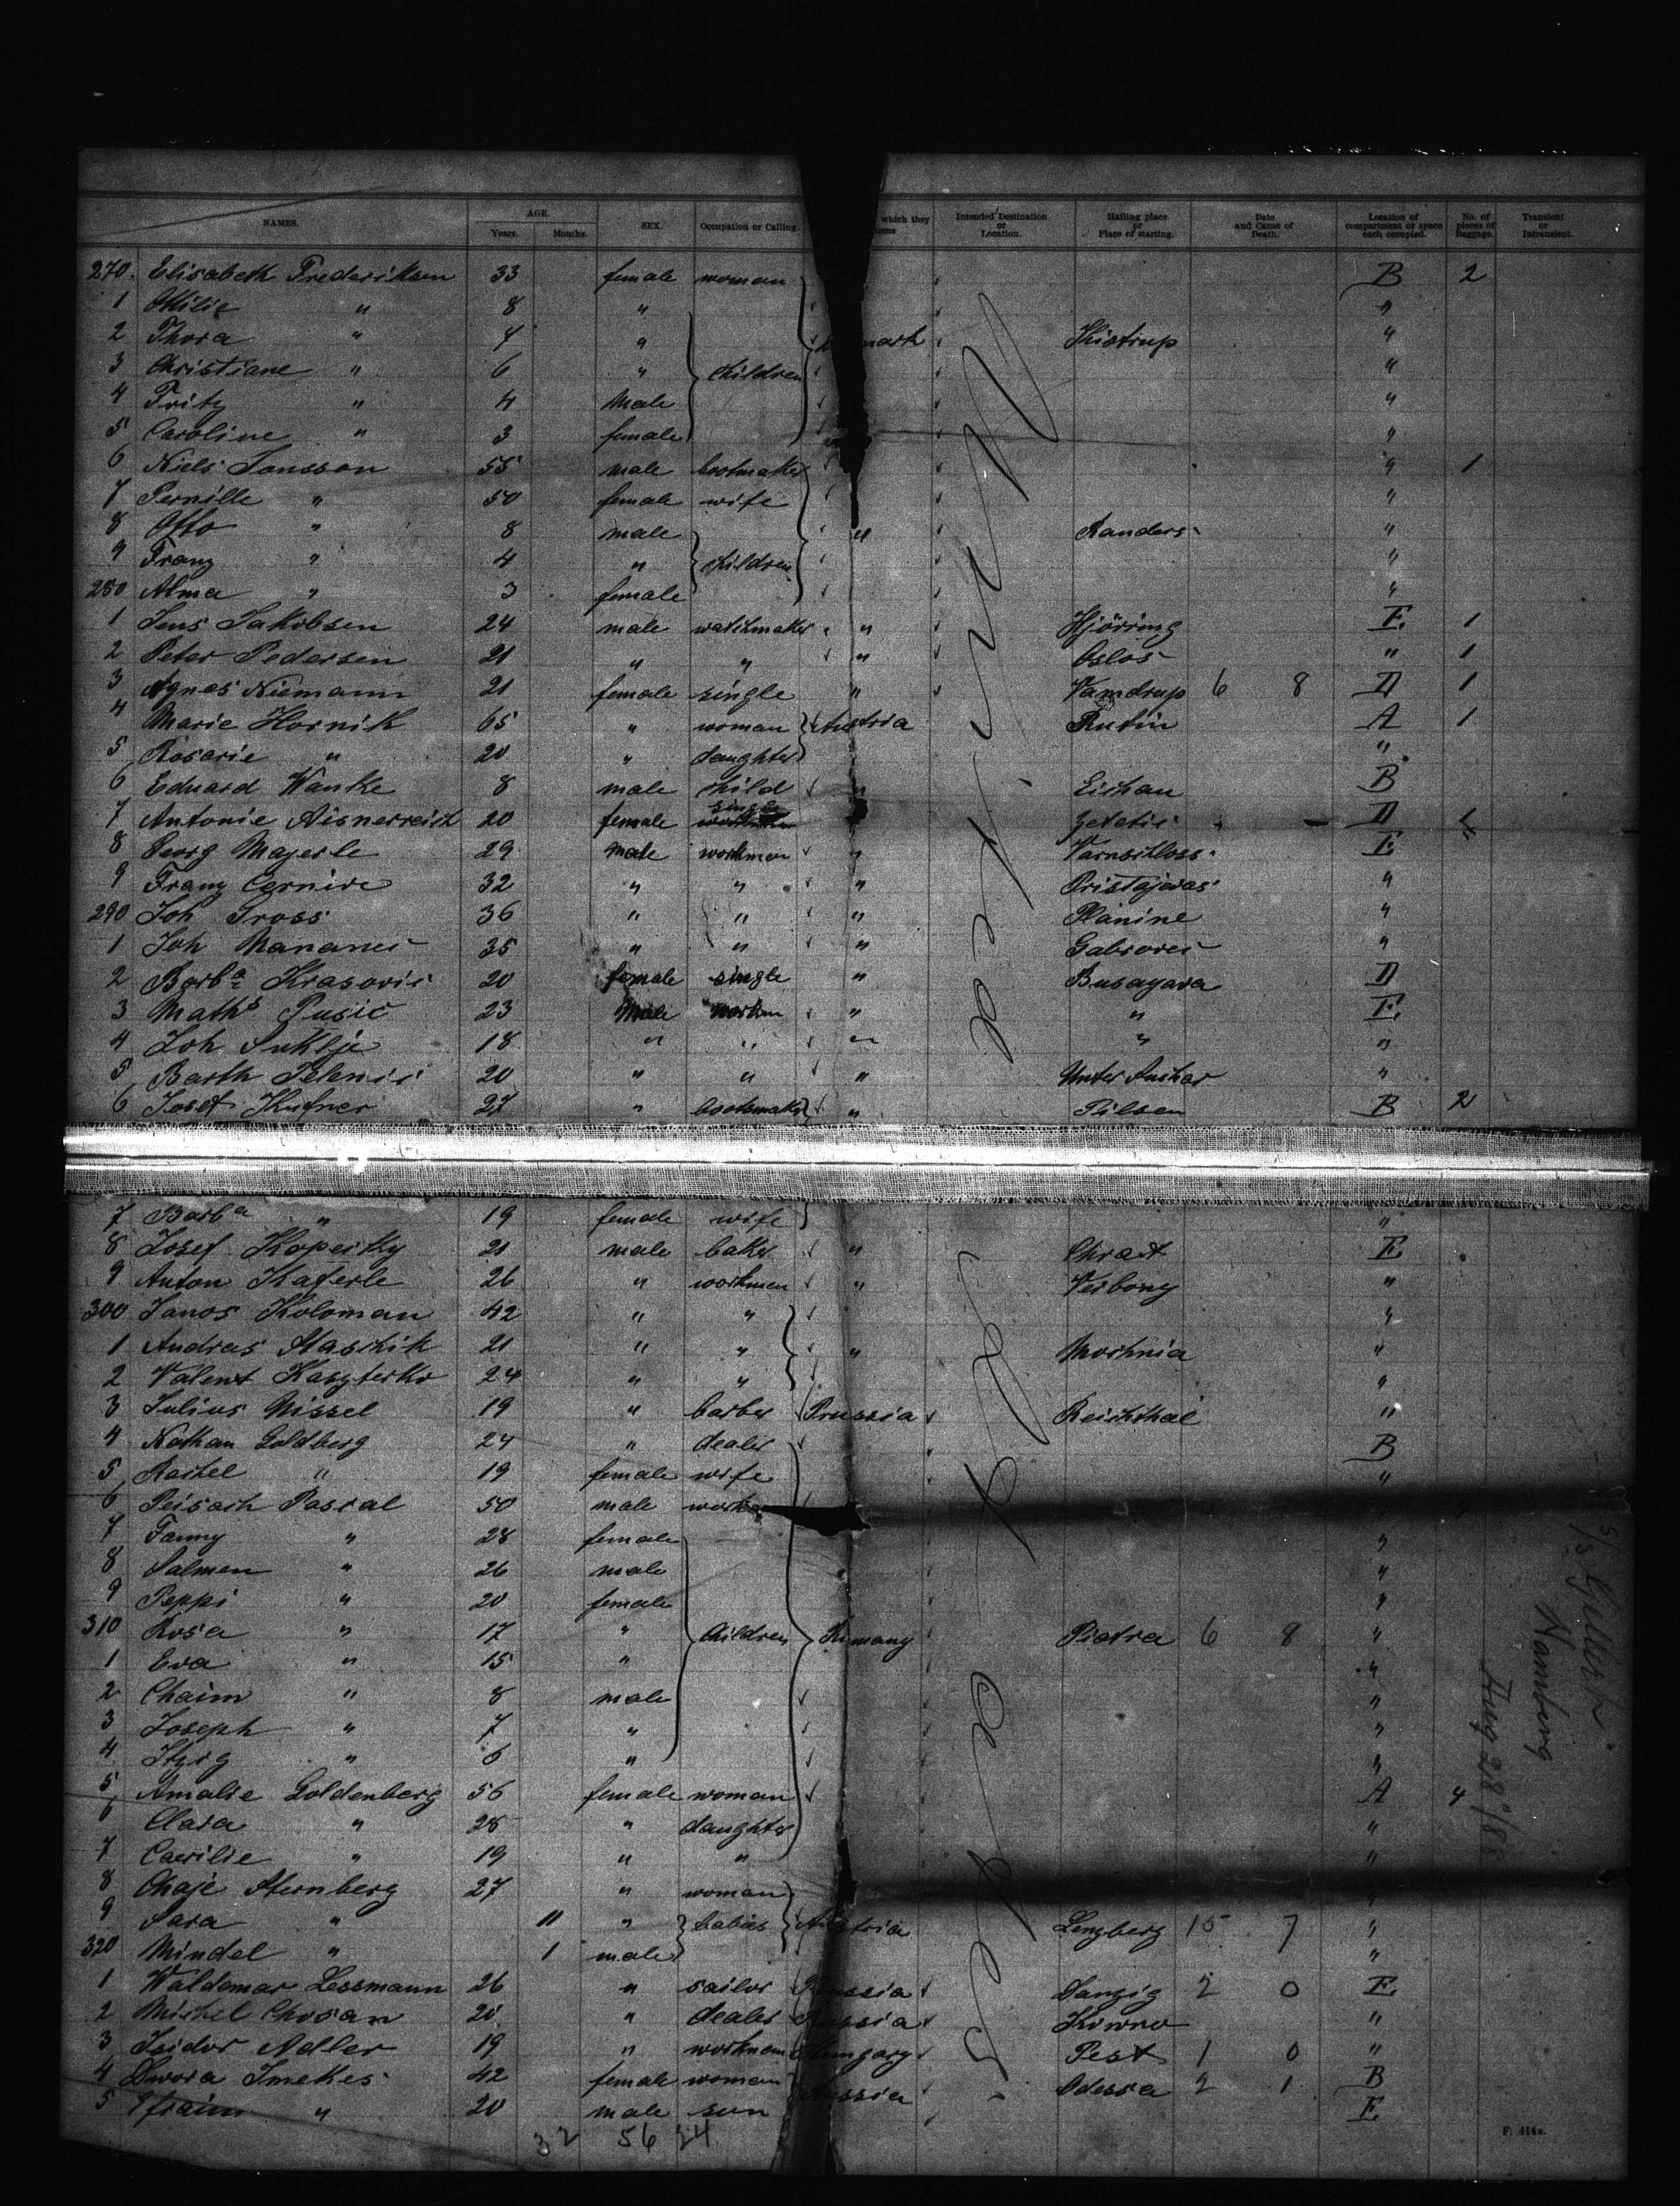 NAMES. AGE. Years. Months. SEX. Occupation or Calling. which they Intended Destination or Location. Hailing place or Place of starting. Date and Cause of Death. Location of compartment or space each occupied. No. of pieces of Baggage. Transient or Intransient.
270. Elisabeth Frederiksen 33 female woman B 2
1 Ottilie " 8 " "
2 Thora " 7 " mark "
3 Christiane " 6 " children "
4 Fritz " 4 Male "
5 Caroline " 3 female "
6 Niels Jonsson 55 male bootmaker " 1
7 Pernille " 50 female wife "
8 Otto " 8 male " Randers "
9 Franz " 4 " children "
280 Alma " 3 female "
1 Jens Jakobsen 24 male watchmaker " Hjörring E. 1
2 Peter Pedersen 21 " " " Oslos " 1
3 Agnes Niemann 21 female single " Vamdrup 6 8 D 1
4 Marie Hornik 65 " woman Austria Rutin A 1
5 Rosarie " 20 " daughter "
6 Eduard Wanke 8 male child " Eichau B
7 Antonie Aisnerreich 20 female single D
8 Georg Majerle 29 male workmen " Varnschloss E.
9 Franz Cernive 32 " " " "
290 Joh Gross 36 " " " Planine "
1 Joh 35 " " " "
2 Barba Krasovic 20 female single " Busayava D
3 Maths Pusic 23 Male workm " " E.
4 Joh Suklje 18 " " " " "
5 Barth 20 " " " Unter "
6 Josef Kufner 27 " bootsmaker " Pilsen B 2
7 Barba " 19 female wife "
8 Josef Kopecky 21 male baker " Chrast E.
9 Anton Kaferle 26 " workmen " Verbony "
300 Janos Koloman 42 " " "
1 Andras Staschik 21 " " " Mochnia "
2 Valent 24 " " "
3 Julius Nissel 19 " barber Prussia Reichthal "
4 Nathan Goldberg 24 " dealer B
5 Rachel " 19 female wife "
6 Peisach Pascal 50 male
7 Fanny " 28 female "
8 Salmen " 26 male "
9 Peppi " 20 female "
310 Rosa " 17 " Children Rumany Piatra 6 8 "
1 Eva " 15 " "
2 Chaim " 8 male "
3 Joseph " 7 " "
4 Itzig " 6 " "
5 Amalie Goldenberg 56 female woman A 4
6 Clara " 28 " daughter "
7 Caecilie " 19 " " "
8 Chaje Sternberg 27 " woman "
9 Sara " 11 " babies Austria Lemberg 15 7 "
320 Mindel " 1 male "
1 Waldemar Lessmann 26 " sailor Prussia Danzig 2 0 E.
2 Michel Chosan 20 " dealer Russia Kowno "
3 Isidor Adler 19 " workmen Hungary Pest 1 0 "
4 Dwora Smekes 42 female woman Russia Odessa 2 1 B
5 Efraim " 20 male son E.
32 56 24
F. 414a.
S/S Gellert
Hamburg
Aug 28"/88